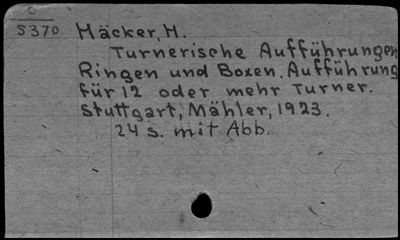 O
5370 Häcker, H.
Turnerische Aufführungen
Ringen und Boxen. Aufführung
für 12 oder mehr Turner.
Stuttgart, Mähler, 1923.
24 S. mit Abb.